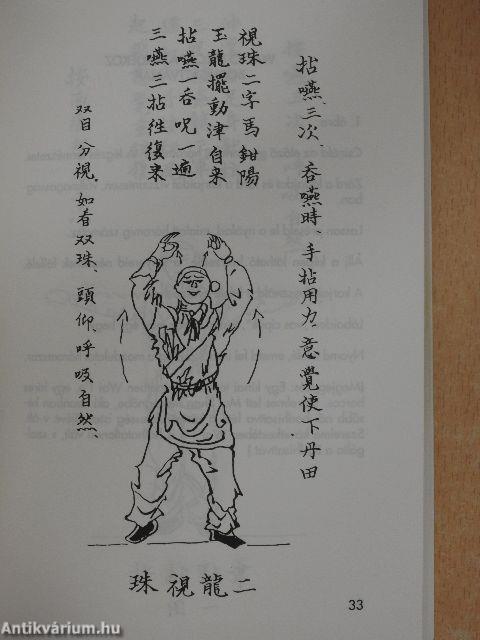 拈嚥三次、吞嚥時、手拈用力、意覺使下丹田
視珠二字馬鉗陽
玉龍擺動津自来
拈嚥一吞呪一遍
三嚥三拈往復来
双目分視、如看双珠、頭仰、呼吸自然、
珠視龍二
33
Antikvárium.hu